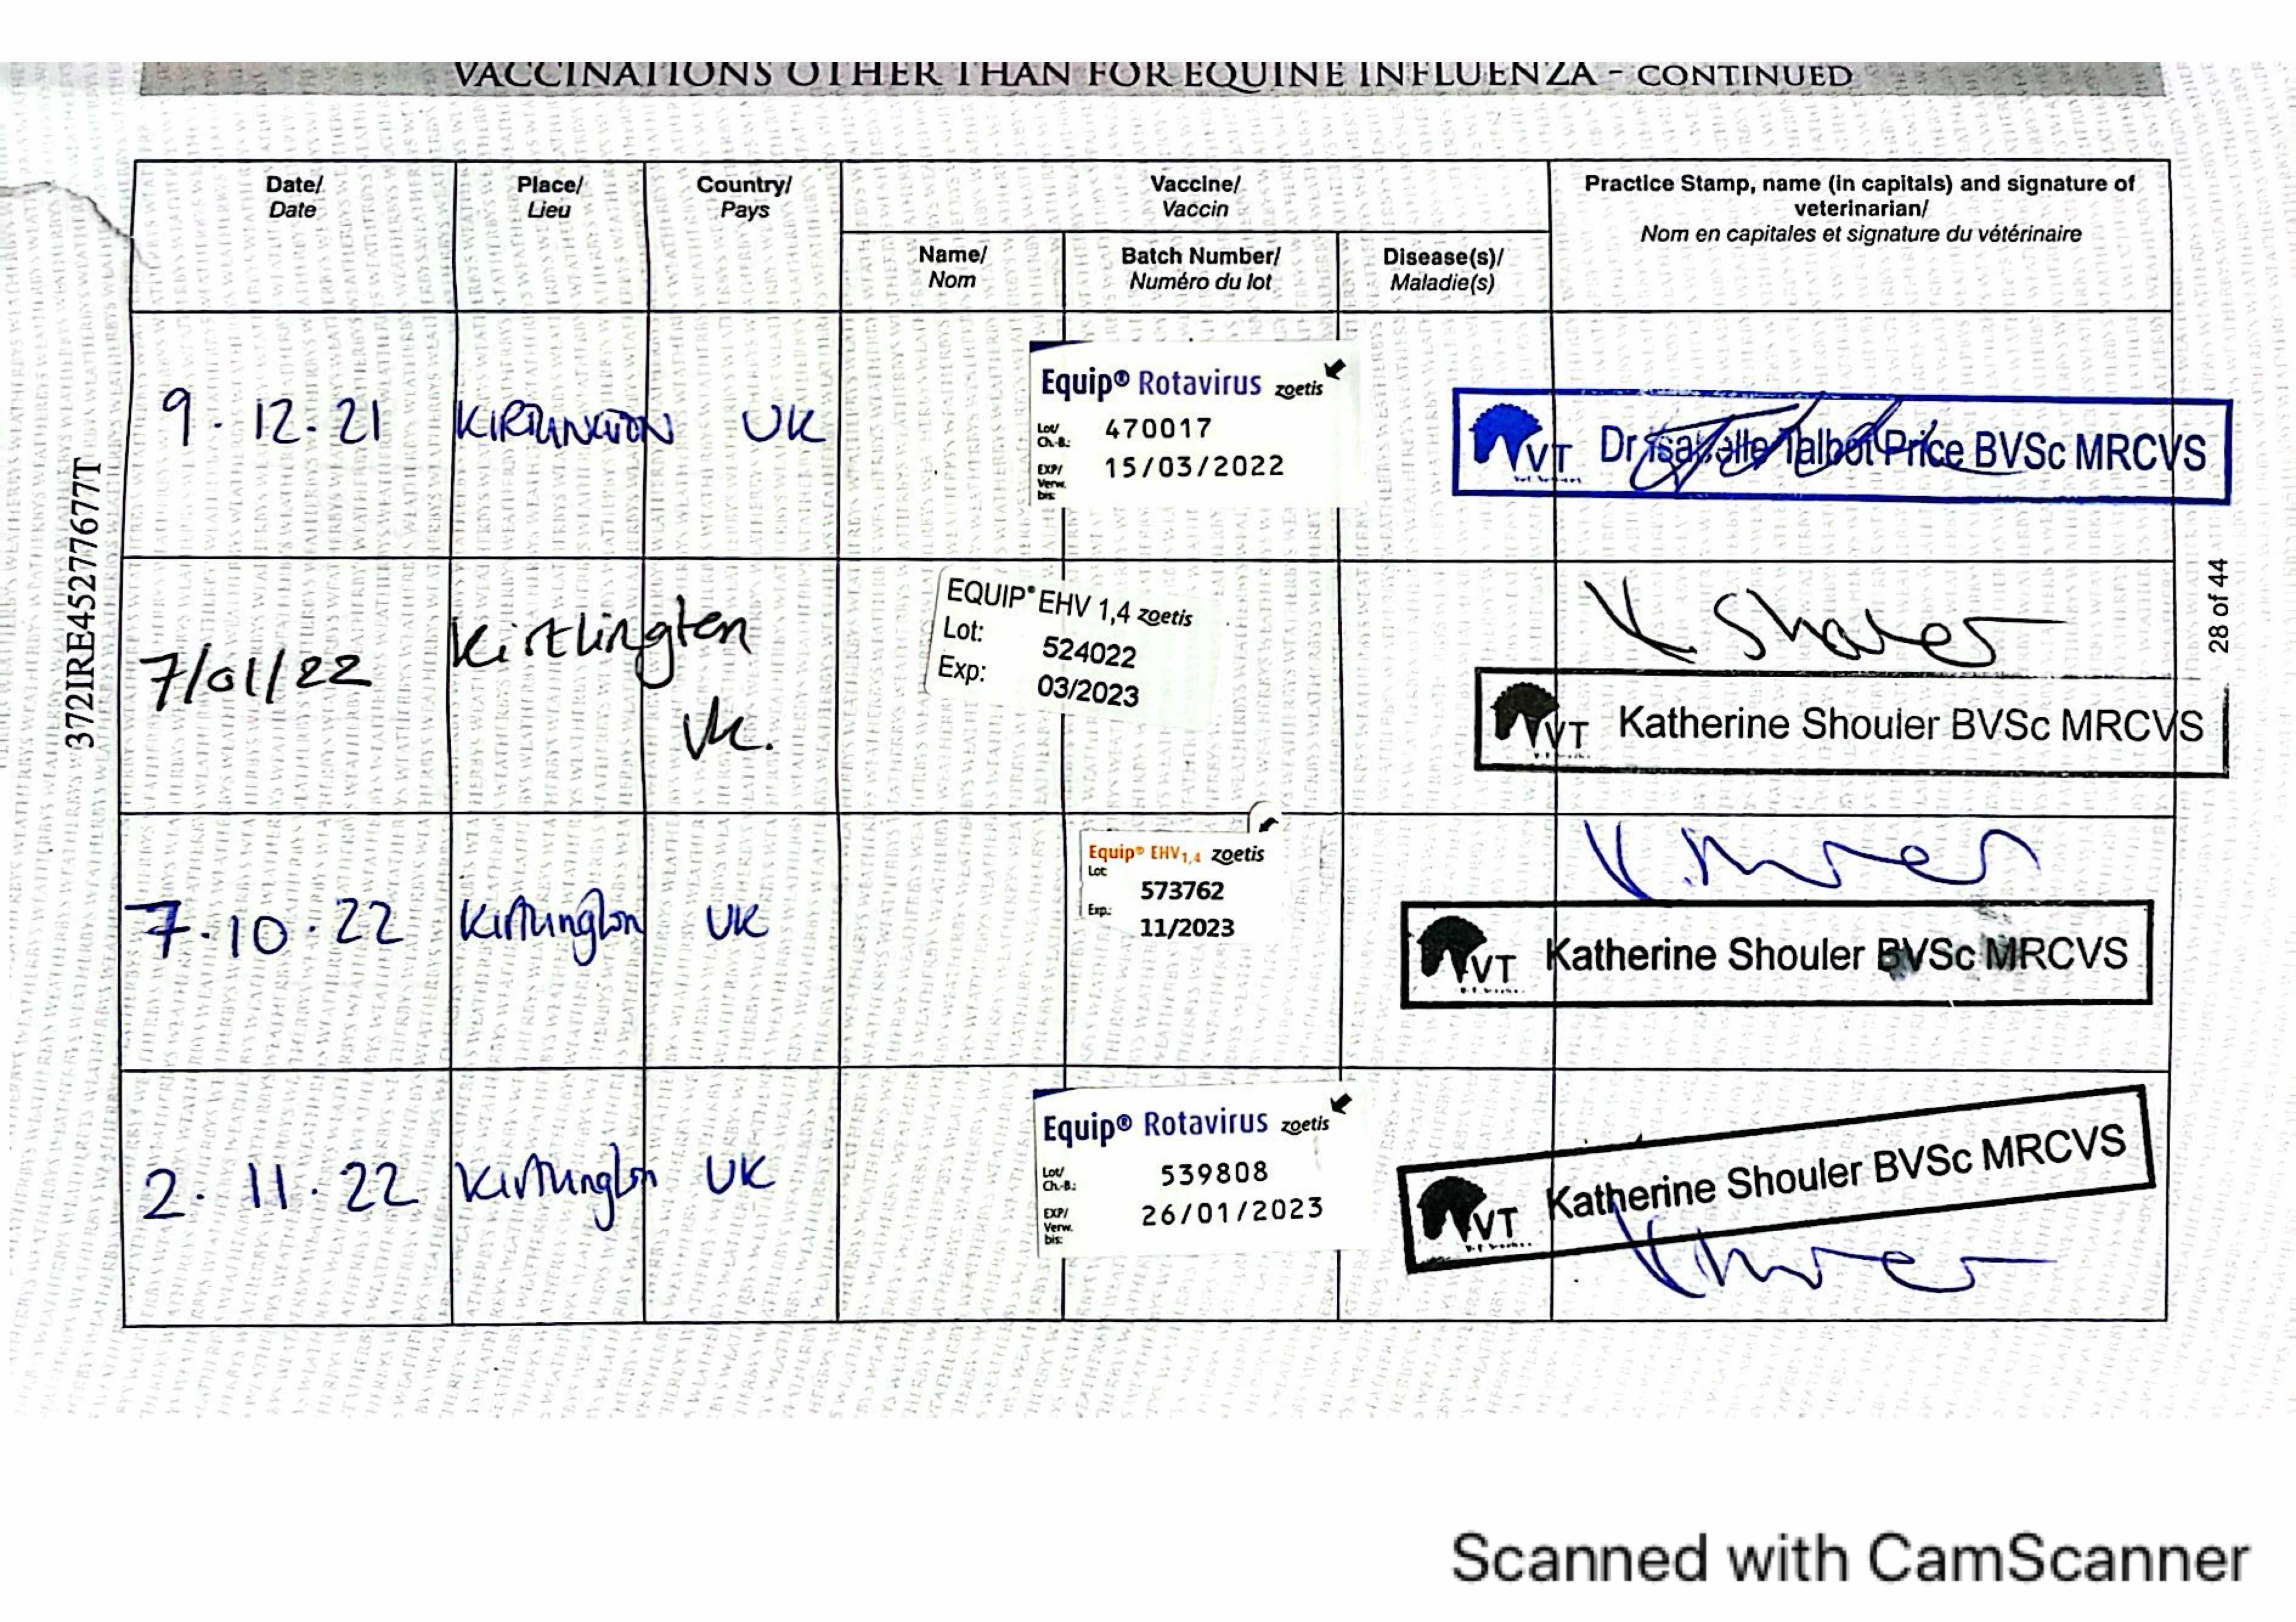 VACCINATIONS OTHER THAN FOR EQUINE INFLUENZA - CONTINUED
Date/
Date
Place/
Lieu
Country/
Pays
Vaccine/
Vaccin
Practice Stamp, name (in capitals) and signature of
veterinarian/
Nom en capitales et signature du vétérinaire
Name/
Nom
Batch Number/
Numéro du lot
Disease(s)/
Maladie(s)
9.12.21
KIRTLINGTON
UK
Equip® Rotavirus zoetis
Lot/
Ch.-B.:
470017
EXP/
Verw.
bis:
15/03/2022
VT Dr Isabelle Talbot Price BVSc MRCVS
7/01/22
Kirtlington
UK.
EQUIP® EHV 1,4 zoetis
Lot: 524022
Exp: 03/2023
K Shouler
VT Katherine Shouler BVSc MRCVS
7.10.22
Kirtlington
UK
Equip® EHV1,4 zoetis
Lot:
573762
Exp.:
11/2023
VT Katherine Shouler BVSc MRCVS
2.11.22
Kirtlington
UK
Equip® Rotavirus zoetis
Lot/
Ch.-B.:
539808
EXP/
Verw.
bis:
26/01/2023
VT Katherine Shouler BVSc MRCVS
372IRE45277677T
28 of 44
Scanned with CamScanner